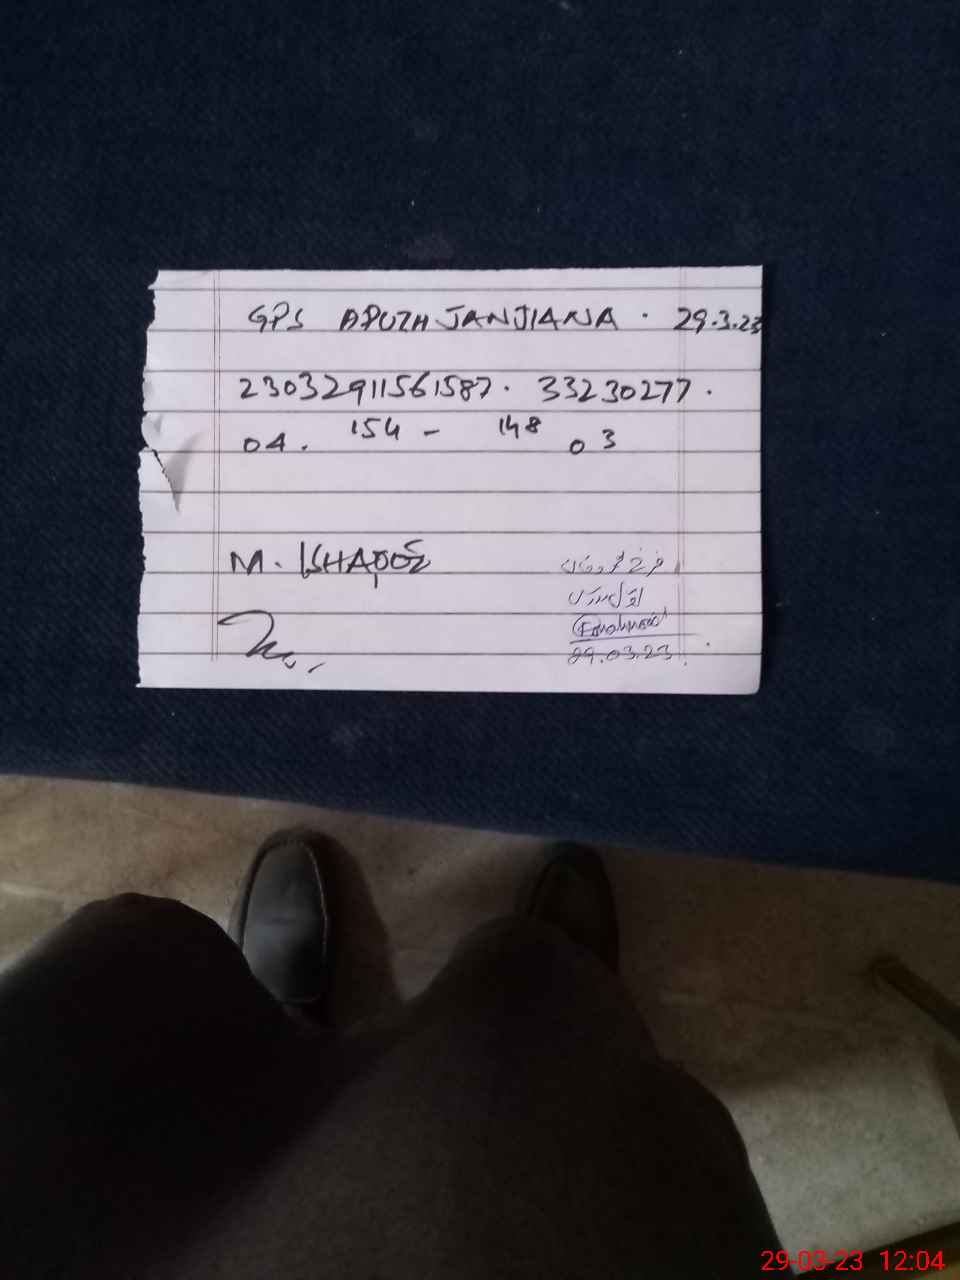 GPS APUZH JANJIANA . 29.3.23
23032911561587. 33230277.
04. 154 - 148 03
M.
اول مدرس
29.03.23
29-03-23 12:04